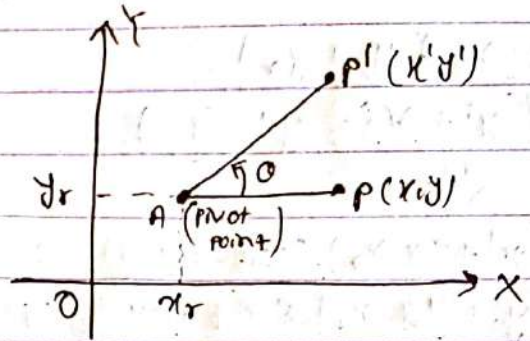 Y
P' (x' y')
θ
yr
A (pivot
point)
P(x,y)
O
xr
X